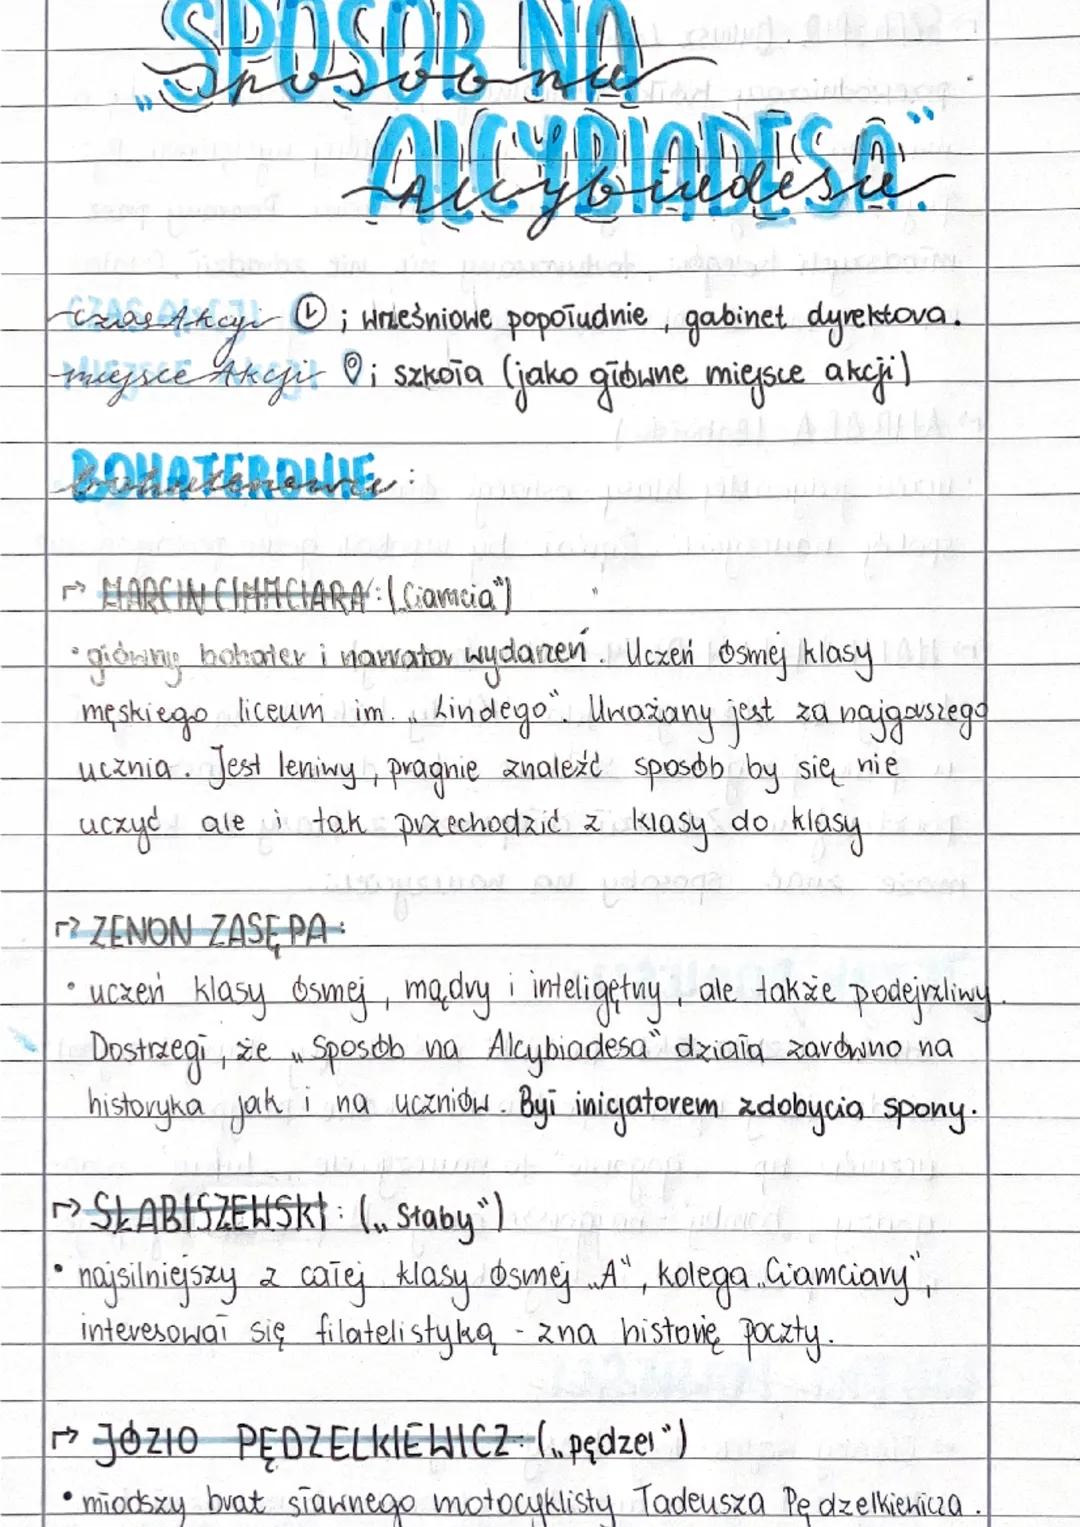 „SPOSÓB NA
Sposób na
ALCYBIADESA"
Alcybiadesa
czas Akcji ; wrześniowe popołudnie, gabinet dyrektora.
miejsce Akcji ; szkoła (jako główne miejsce akcji)
BOHATEROWIE
bohaterowie:
→ MARCIN CIAMCIARA: („Ciamcia")
• główny bohater i narrator wydarzeń. Uczeń ósmej klasy
męskiego liceum im. „Lindego". Uważany jest za najgorszego
ucznia. Jest leniwy, pragnie znaleźć sposób by się nie
uczyć ale i tak przechodzić z klasy do klasy
→ ZENON ZASĘPA:
• uczeń klasy ósmej, mądry i inteligętny, ale także podejrzliwy.
Dostrzegł, że „Sposób na Alcybiadesa" działa zarówno na
historyka jak i na uczniów. Był inicjatorem zdobycia spony.
→ SŁABISZEWSKI: („Słaby")
• najsilniejszy z całej klasy ósmej „A", kolega „Ciamciary",
interesował się filatelistyką - zna historię poczty.
→ JÓZIO PĘDZELKIEWICZ: („pędzel")
• młodszy brat sławnego motocyklisty Tadeusza Pędzelkiewicza.